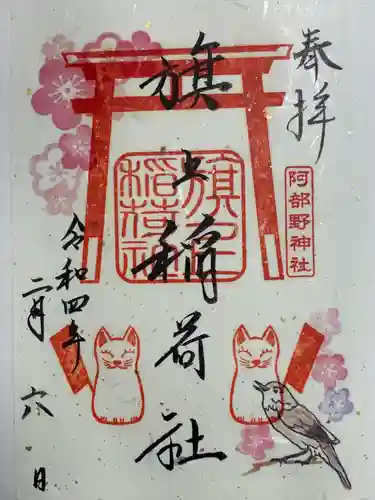 奉拝
阿部野神社
旗上稲荷社
旗上
稲荷社
令和四年
二月六日